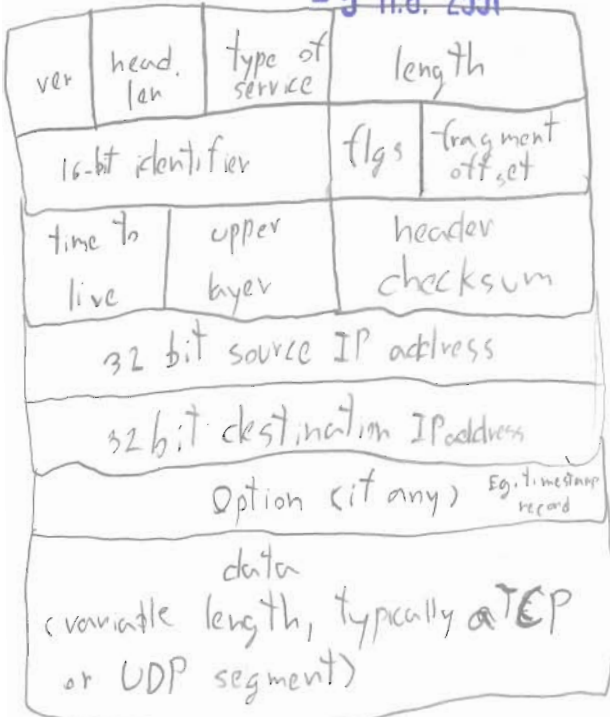 ver head. len type of service length
16-bit identifier flgs fragment offset
time to live upper layer header checksum
32 bit source IP address
32 bit destination IP address
Option (if any) Eg. timestamp record
data
(variable length, typically a TCP
or UDP segment)